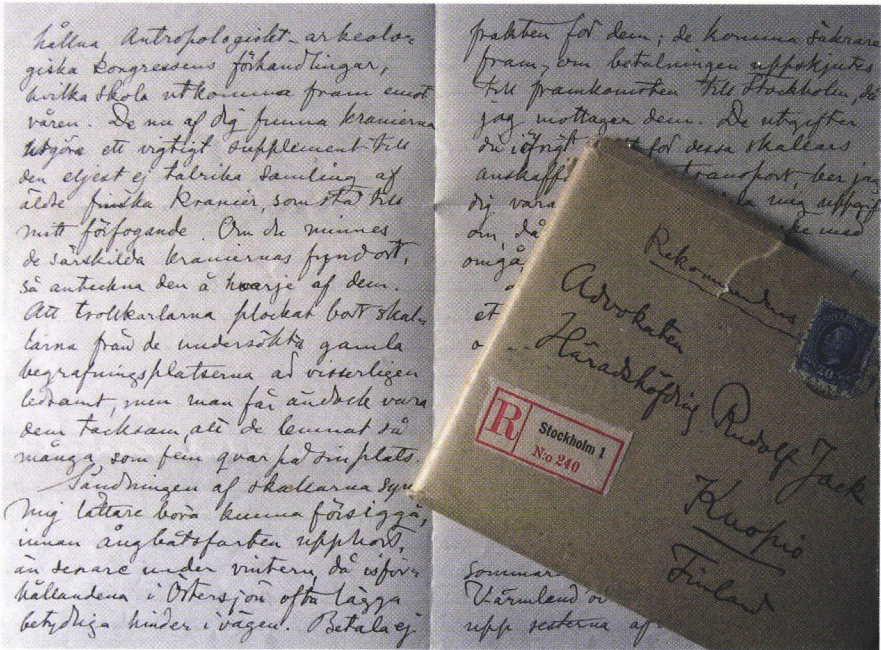 hållna Antropologiskt-arkeolo-
giska kongressens förhandlingar,
hvilka skola utkomma fram emot
våren. De nu af dig funna kranierna
utgöra ett vigtigt supplement till
den eljest ej talrika samling af
äldre finska kranier, som stå till
mitt förfogande. Om du minnes
de särskilda kraniernas fyndort,
så anteckna den å hvarje af dem.
Att trollkarlarna plockat bort skal-
larna från de undersökta gamla
begrafningsplatserna är visserligen
ledsamt, men man får ändock vara
dem tacksam, att de lemnat så
många som fem qvar på sin plats.
Sändningen af skallarna syn
mig lättare böra kunna försiggå,
innan ångbåtsfarten upphört,
än senare under vintern, då isför-
hållandena i Östersjön ofta lägga
betydliga hinder i vägen. Betala ej
frakten för dem; de komma säkrare
fram, om betalningen uppskjutes
till framkomsten till Stockholm, då
jag mottager dem. De utgifter
du i öfrigt för dessa skallars
transport, ber jag
dig vara mig uppgif
om, då med
omgå
et
Rekommenderas
Advokaten
Häradshöfding Rudolf Jack
Kuopio
Finland
R
Stockholm 1
N:o 240
sommare
Värmland oc
upp resterna af